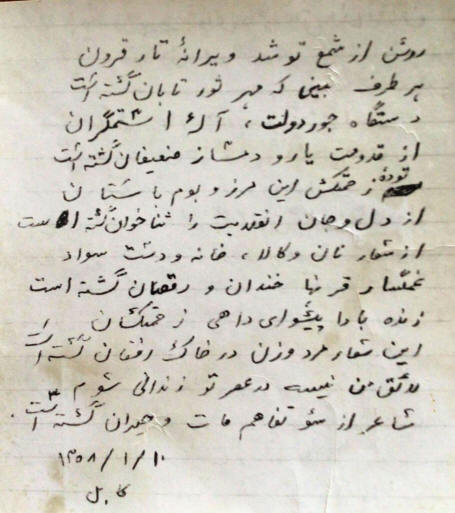 روشن از شمع تو شد ویرانهٔ تار قرون
هر طرف بینی که مهر نور تابان گشته است
دستگاه جور دولت، آلهٔ اشتمگران
از قدومت یار و دمساز ضعیفان گشته است
تودهٔ زحمتکش این مرز و بوم باستان
از دل و جان انقلابت را ثناخوان گشته است
از شعار نان و کالا، خانه و دشت سواد
غمگسار قرنها خندان و رقصان گشته است
زنده بادا پیشوای داهی زحمتکشان
این شعار مرد و زن در خاک افغان گشته است
لائق من نیست در عصر تو زندانی شوم
شاعر از سؤ تفاهم مات و حیران گشته است.
۱۳۵۸/۱/۱۰
کابل